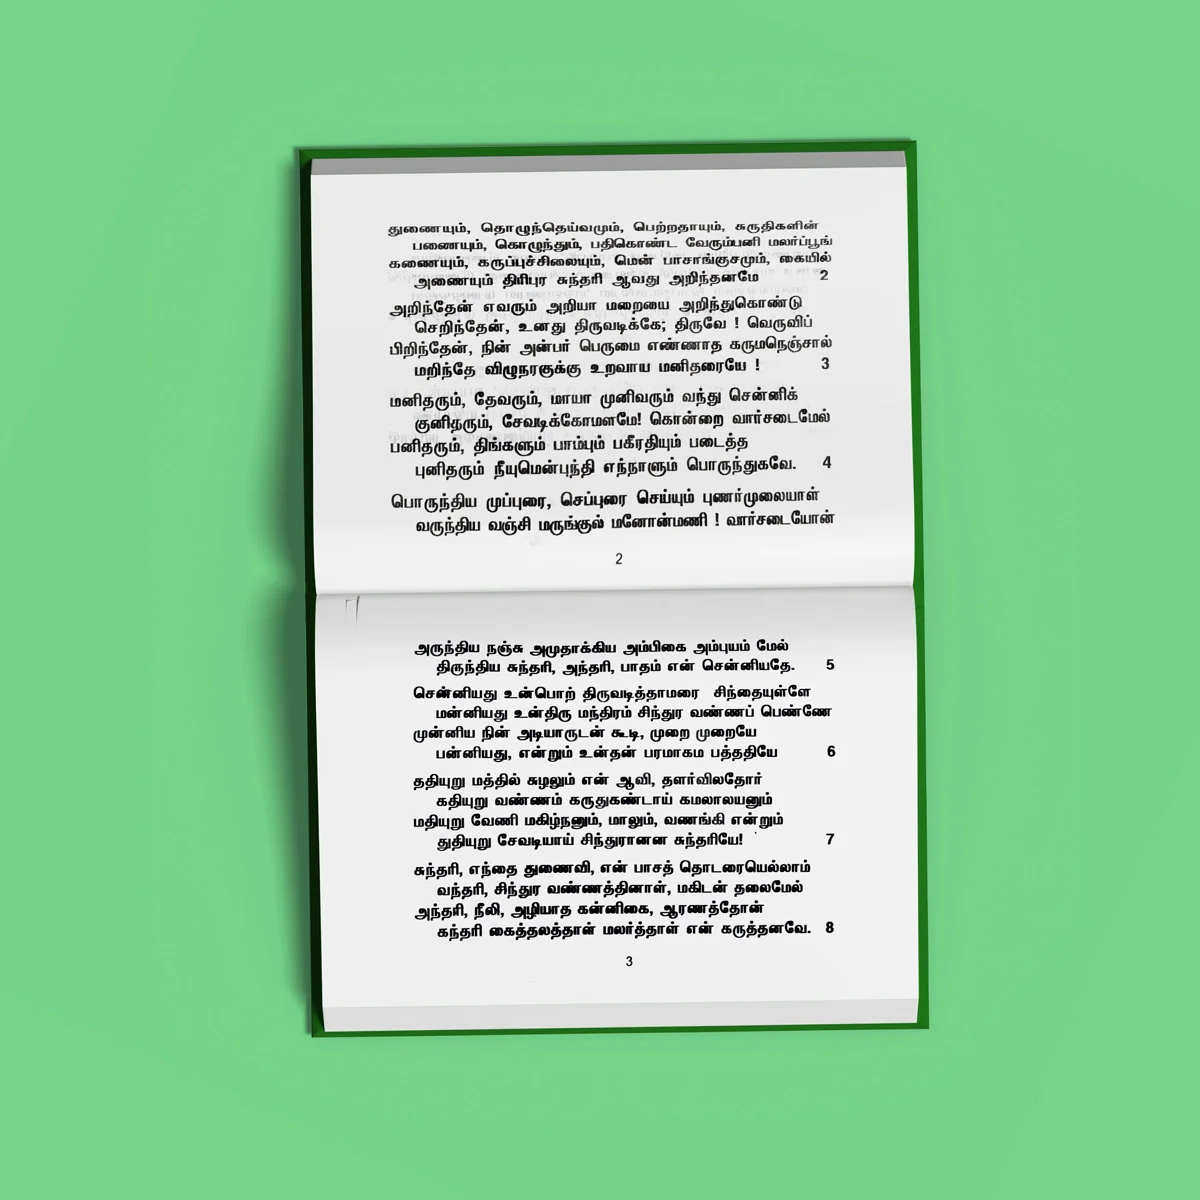 துணையும், தொழுந்தெய்வமும், பெற்றதாயும், சுருதிகளின்
பணையும், கொழுந்தும், பதிகொண்ட வேரும்பனி மலர்ப்பூங்
கணையும், கருப்புச்சிலையும், மென் பாசாங்குசமும், கையில்
அணையும் திரிபுர சுந்தரி ஆவது அறிந்தனமே 2
அறிந்தேன் எவரும் அறியா மறையை அறிந்துகொண்டு
செறிந்தேன், உனது திருவடிக்கே; திருவே ! வெருவிப்
பிறிந்தேன், நின் அன்பர் பெருமை எண்ணாத கருமநெஞ்சால்
மறிந்தே விழுநரகுக்கு உறவாய மனிதரையே ! 3
மனிதரும், தேவரும், மாயா முனிவரும் வந்து சென்னிக்
குனிதரும், சேவடிக்கோமளமே! கொன்றை வார்சடைமேல்
பனிதரும், திங்களும் பாம்பும் பகீரதியும் படைத்த
புனிதரும் நீயுமென்புந்தி எந்நாளும் பொருந்துகவே. 4
பொருந்திய முப்புரை, செப்புரை செய்யும் புணர்முலையாள்
வருந்திய வஞ்சி மருங்குல் மனோன்மணி ! வார்சடையோன்
2
அருந்திய நஞ்சு அமுதாக்கிய அம்பிகை அம்புயம் மேல்
திருந்திய சுந்தரி, அந்தரி, பாதம் என் சென்னியதே. 5
சென்னியது உன்பொற் திருவடித்தாமரை சிந்தையுள்ளே
மன்னியது உன்திரு மந்திரம் சிந்துர வண்ணப் பெண்ணே
முன்னிய நின் அடியாருடன் கூடி, முறை முறையே
பன்னியது, என்றும் உன்தன் பரமாகம பத்ததியே 6
ததியுறு மத்தில் சுழலும் என் ஆவி, தளர்விலதோர்
கதியுறு வண்ணம் கருதுகண்டாய் கமலாலயனும்
மதியுறு வேணி மகிழ்நனும், மாலும், வணங்கி என்றும்
துதியுறு சேவடியாய் சிந்துரானன சுந்தரியே! 7
சுந்தரி, எந்தை துணைவி, என் பாசத் தொடரையெல்லாம்
வந்தரி, சிந்துர வண்ணத்தினாள், மகிடன் தலைமேல்
அந்தரி, நீலி, அழியாத கன்னிகை, ஆரணத்தோன்
கந்தரி கைத்தலத்தாள் மலர்த்தாள் என் கருத்தனவே. 8
3